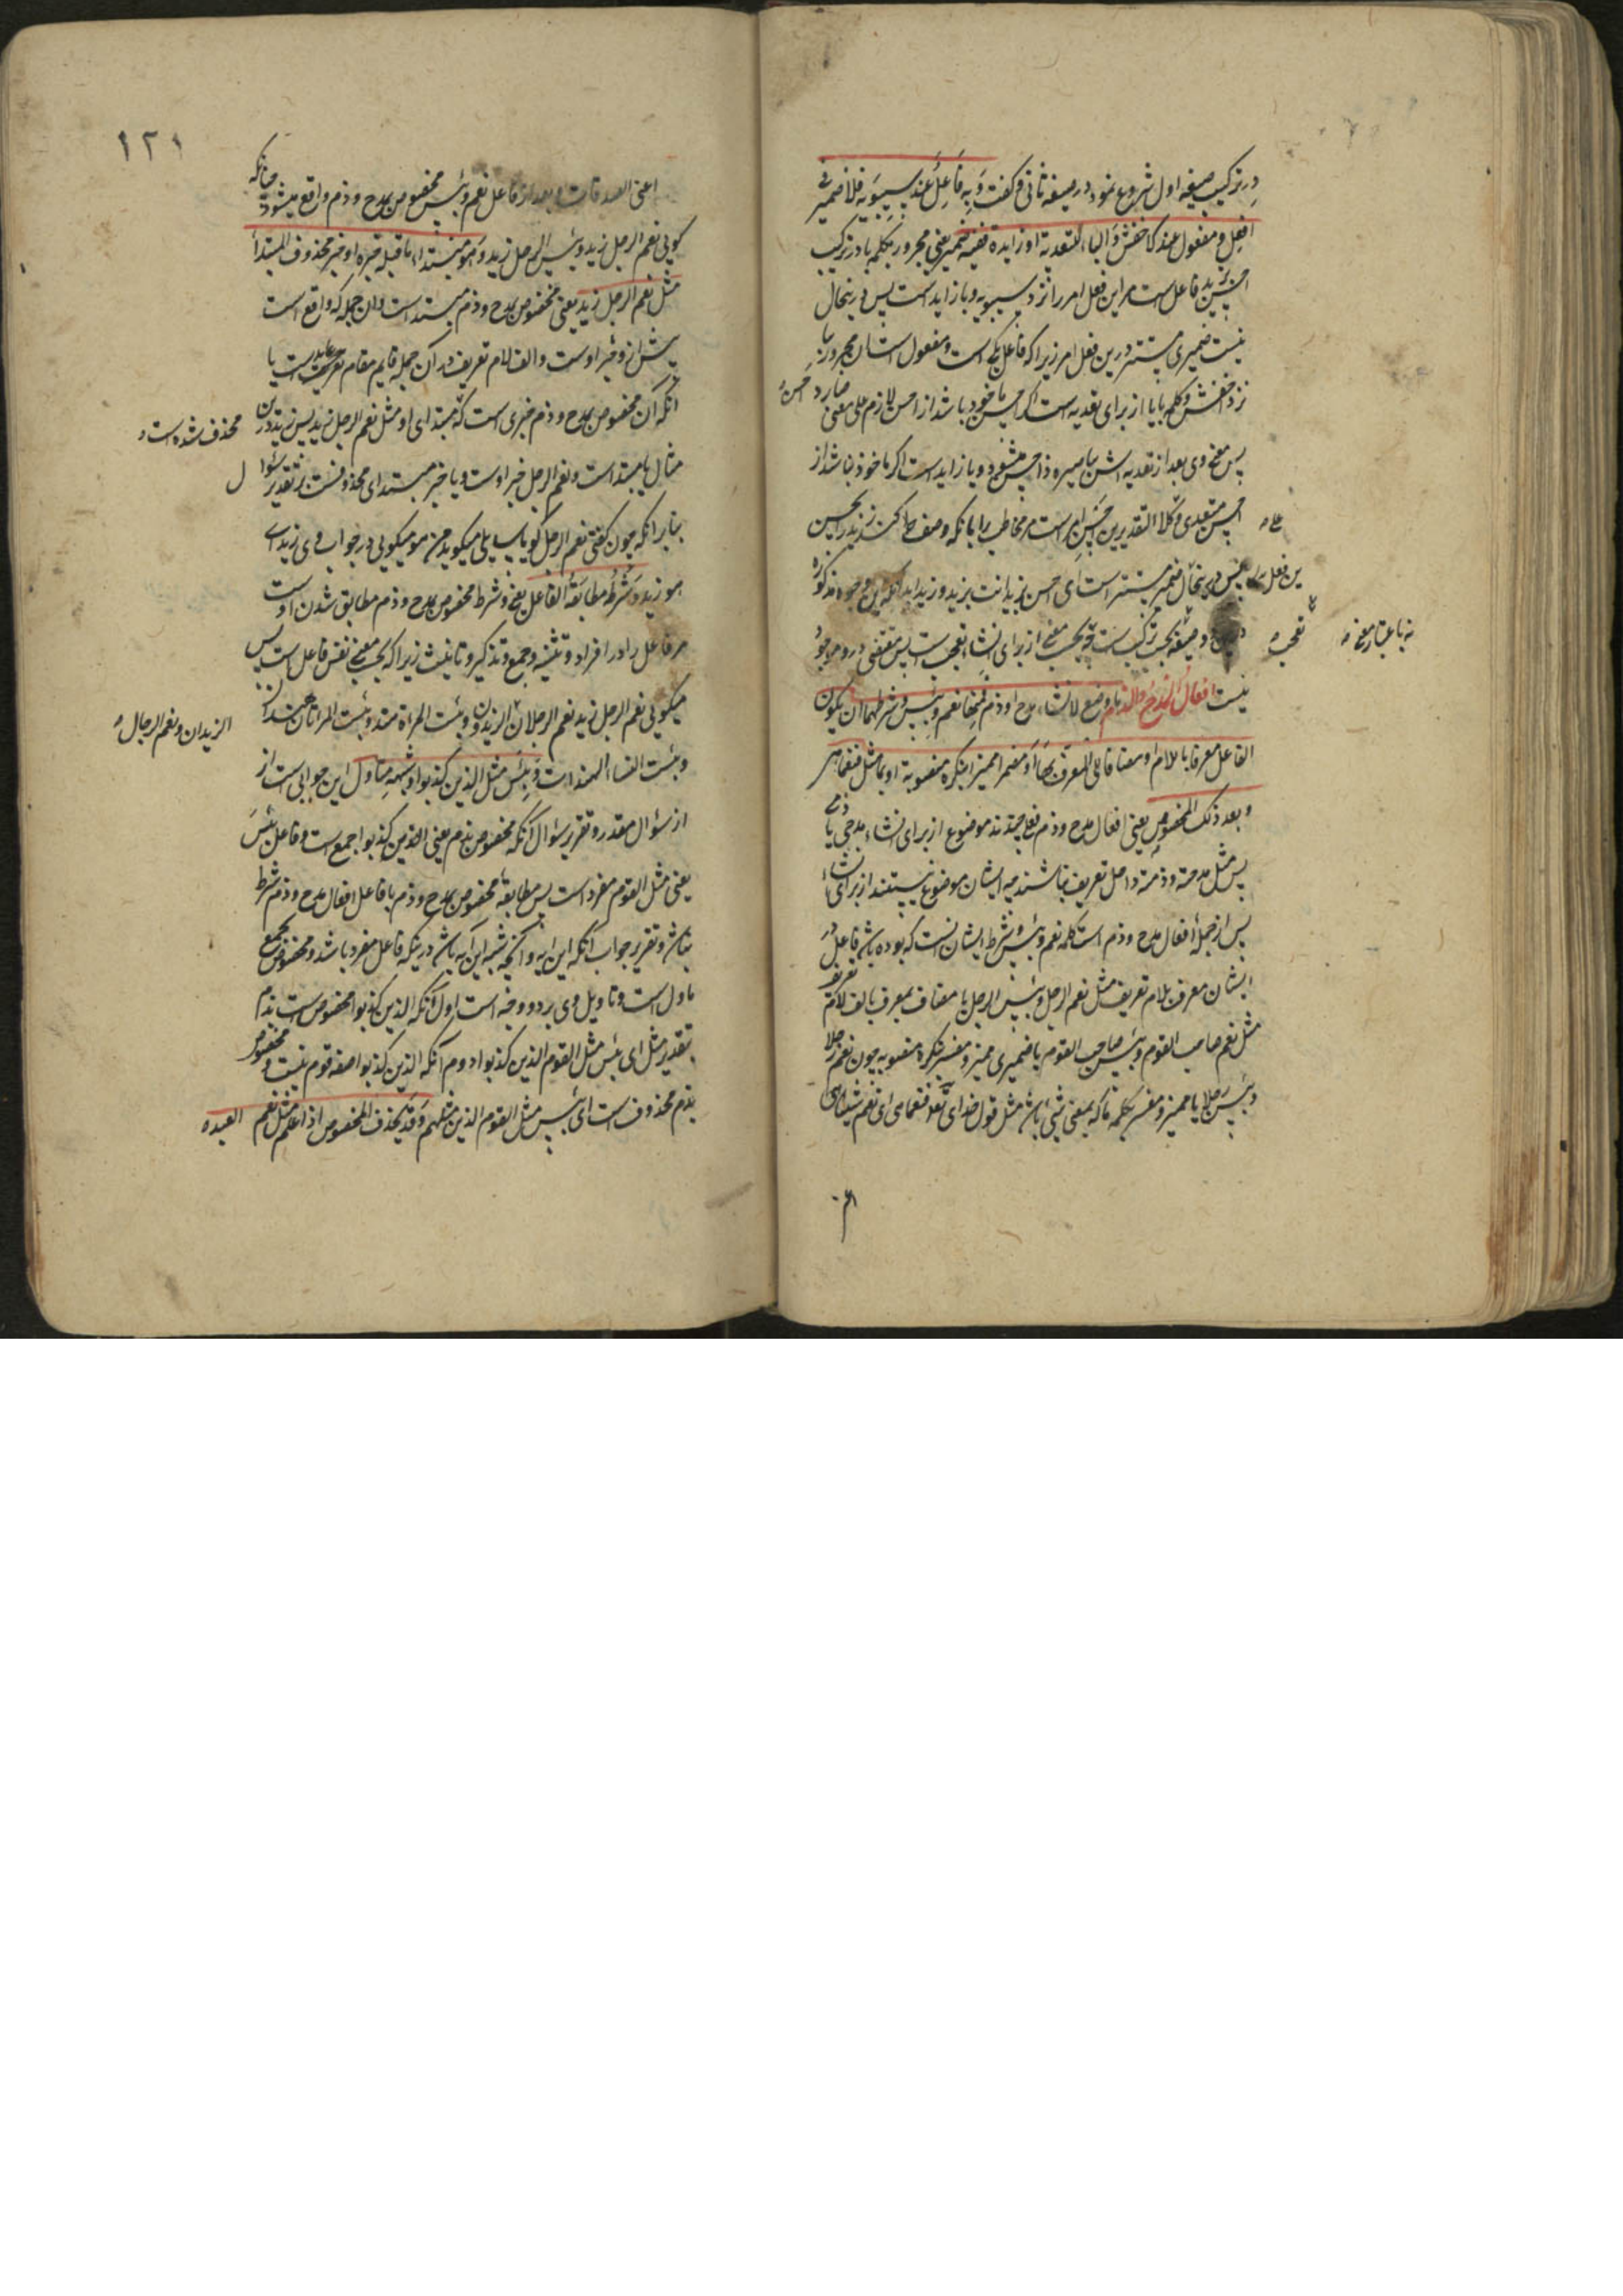 در ترکیب صیغه اول شروع نمود در صیغه ثانی و کفت وَبِهِ فَاعِلٌ عِندَ سیبَوَیه فلا ضمیر فی
افعِل و مفعول عند الاخفش وَالباء للتعدیة او زایدة ففیه ضمیر یعنی مجرور بکلمه با در ترکیب
احسن بزید فاعل است مر این فعل امر را نزد سیبویه و با زاید است پس در ینحال
نیست ضمیری مستتر درین فعل امر زیرا که فاعل یکی است و مفعول است آن مجرور بیا
نزد اخفش و کلمه با یا از برای تعدیه است اکر احسن ماخوذ باشد از احسن لازم علی معنی صار ذا حسن
پس معنی وی بعد از تعدیه اش صیره ذا حسن میشود و یا زاید است اکر ماخوذ باشد از
احسن متعدی و علی کلا التقدیرین احسن امر است مر مخاطب را بانکه وصف کند زید را بحسن
پس در ینحال ضمیر مستتر است ای احسن انت بزید و زیدا
صیغه بحسب ترکیب است و بحسب معنی از برای انشاء تعجب است پس در و موجود
تعجب
نه باعتبار معنی
نیست افعال المدح والذم ما وضع لانشاء مدح او ذم فمنها نعم وبئس وشرطهما ان یکون
الفاعل معرفا باللام او مضافا الی المعرف بها او مضمرا ممیزا بنکرة منصوبة او بما مثل فنعما هی
و بعد ذلک المخصوص یعنی افعال مدح و ذم فعلی چندند موضوع از برای انشاء مدحی یا ذمی
پس مثل مدحته و ذممته داخل تعریف نباشند چه ایشان موضوع نیستند از برای انشاء
پس از جملهٔ افعال مدح و ذم است کلمه نعم و بئس و شرط ایشان نست که بوده باشد فاعل در
ایشان معرف بلام تعریف مثل نعم الرجل و بئس الرجل یا مضاف بمعرف بالف لام تعریف
مثل نعم صاحب القوم و بئس صاحب القوم یا ضمیری ممیز و مفسر بنکره منصوبه چون نعم رجلا
و بئس رجلا یا ممیز و مفسر بکلمه ما که بمعنی شیئ باشد مثل قول خدای تعالی فنعما هی ای نعم شیئا هی
۱۲۱
اعنی الصدقات و بعد از فاعل نعم و بئس مخصوص بمدح و ذم واقع میشود چنانکه
کویی نعم الرجل زید و بئس الرجل زید وَهو مبتداء ما قبله خبره او خبر محذوف المبتدأ
مثل نعم الرجل زید یعنی مخصوص بمدح و ذم مبتدا است و ان جمله که واقع است
پیش از و خبر اوست و الف لام تعریف در آن جمله قایم مقام عاید است یا
آنکه آن مخصوص بمدح و ذم خبری است که مبتدای او محذوف شده است مثل نعم الرجل زید پس زید درین
مثال یا مبتدا است و نعم الرجل خبر اوست و یا خبر مبتدای محذوفست بر تقدیر سئوال
بنابر آنکه چون کفتی نعم الرجل کویا سایلی میکوید من هو میکویی در جواب وی زید ای
هو زید وَشَرطُ مطابقَةُ الفاعل یعنی و شرط مخصوص بمدح و ذم مطابق شدن اوست
مر فاعل را در افراد و تثنیه و جمع و تذکیر و تانیث زیرا که بحسب معنی نفس فاعل است پس
میکویی نعم الرجل زید نعم الرجلان الزیدان و نعم الرجال الزیدون و بئست المراة هند و بئست المراتان هندان
و بئست النساء الهندات وَبِئسَ مثل الذین کذبوا وشبهه متأول این جوابی است از
از سئوال مقدر و تقریر سئوال آنکه مخصوص بذم یعنی الذین کذبوا جمع است و فاعل بئسَ
یعنی مثل القوم مفرد است پس مطابقه مخصوص بمدح و ذم با فاعل افعال مدح و ذم شرط
نباشد و تقریر جواب آنکه این ایه و آنچه شبه این آیه باشد درینکه فاعل مفرد باشد و مخصوص جمع
ماول است و تاویل وی بر دو وجه است اول آنکه الذین کذبوا مخصوص است بذم
بتقدیر مثل ای بئس مثل القوم مثل الذین کذبوا دوم آنکه الذین کذبوا صفه قوم نیست و مخصوص
بذم محذوف است ای بئس مثل القوم الذین مثلهم وَقَد یحذف المخصوص اذا علم مثل نعم العبده